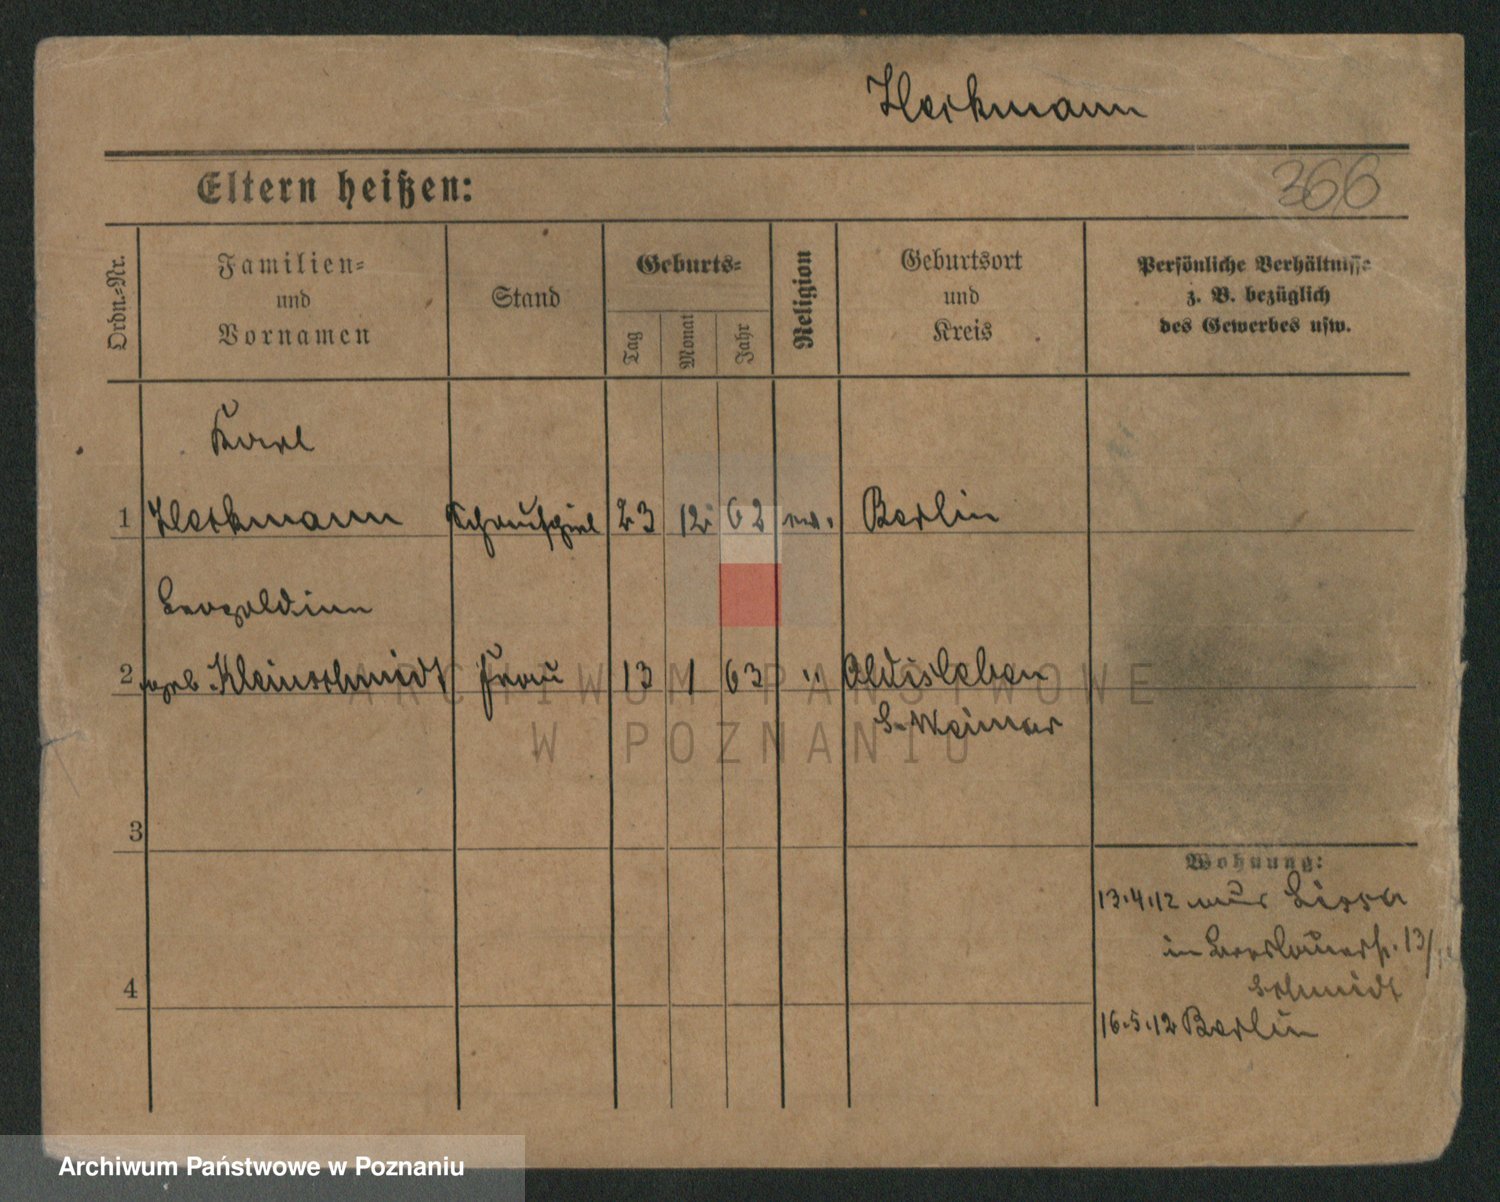 Heckmann
Eltern heißen:
366
Ordn.-Nr.
Familien-
und
Vornamen
Stand
Geburts-
Tag
Monat
Jahr
Religion
Geburtsort
und
Kreis
Persönliche Verhältnisse
z. B. bezüglich
des Gewerbes usw.
Karl
1 Heckmann Schauspiel 23 12 62 ev. Berlin
Leopoldine
2 geb Kleinschmidt Frau 13 1 63 " Oldisleben
S. Weimar
3
Wohnung:
13.4.12 aus Lissa
in Breslauerstr. 13/
Schmidt
4
16.5.12 Berlin
ARCHIWUM PAŃSTWOWE
W POZNANIU
Archiwum Państwowe w Poznaniu